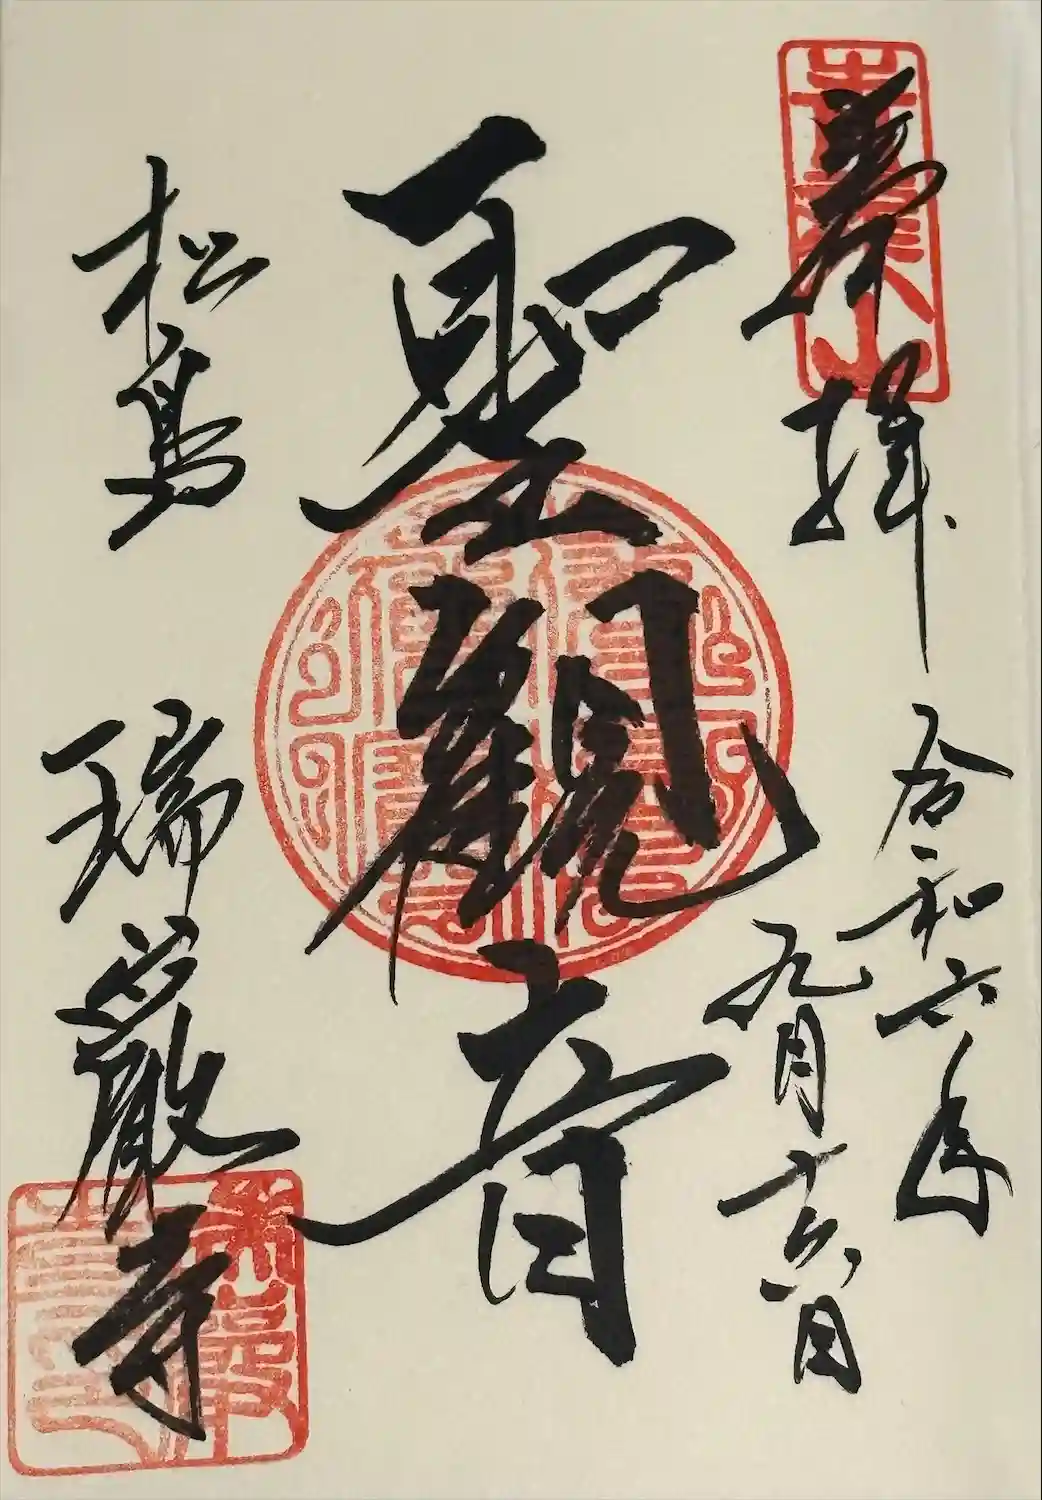 奉拝
令和六年
九月十六日
聖観音
松島
瑞巌寺